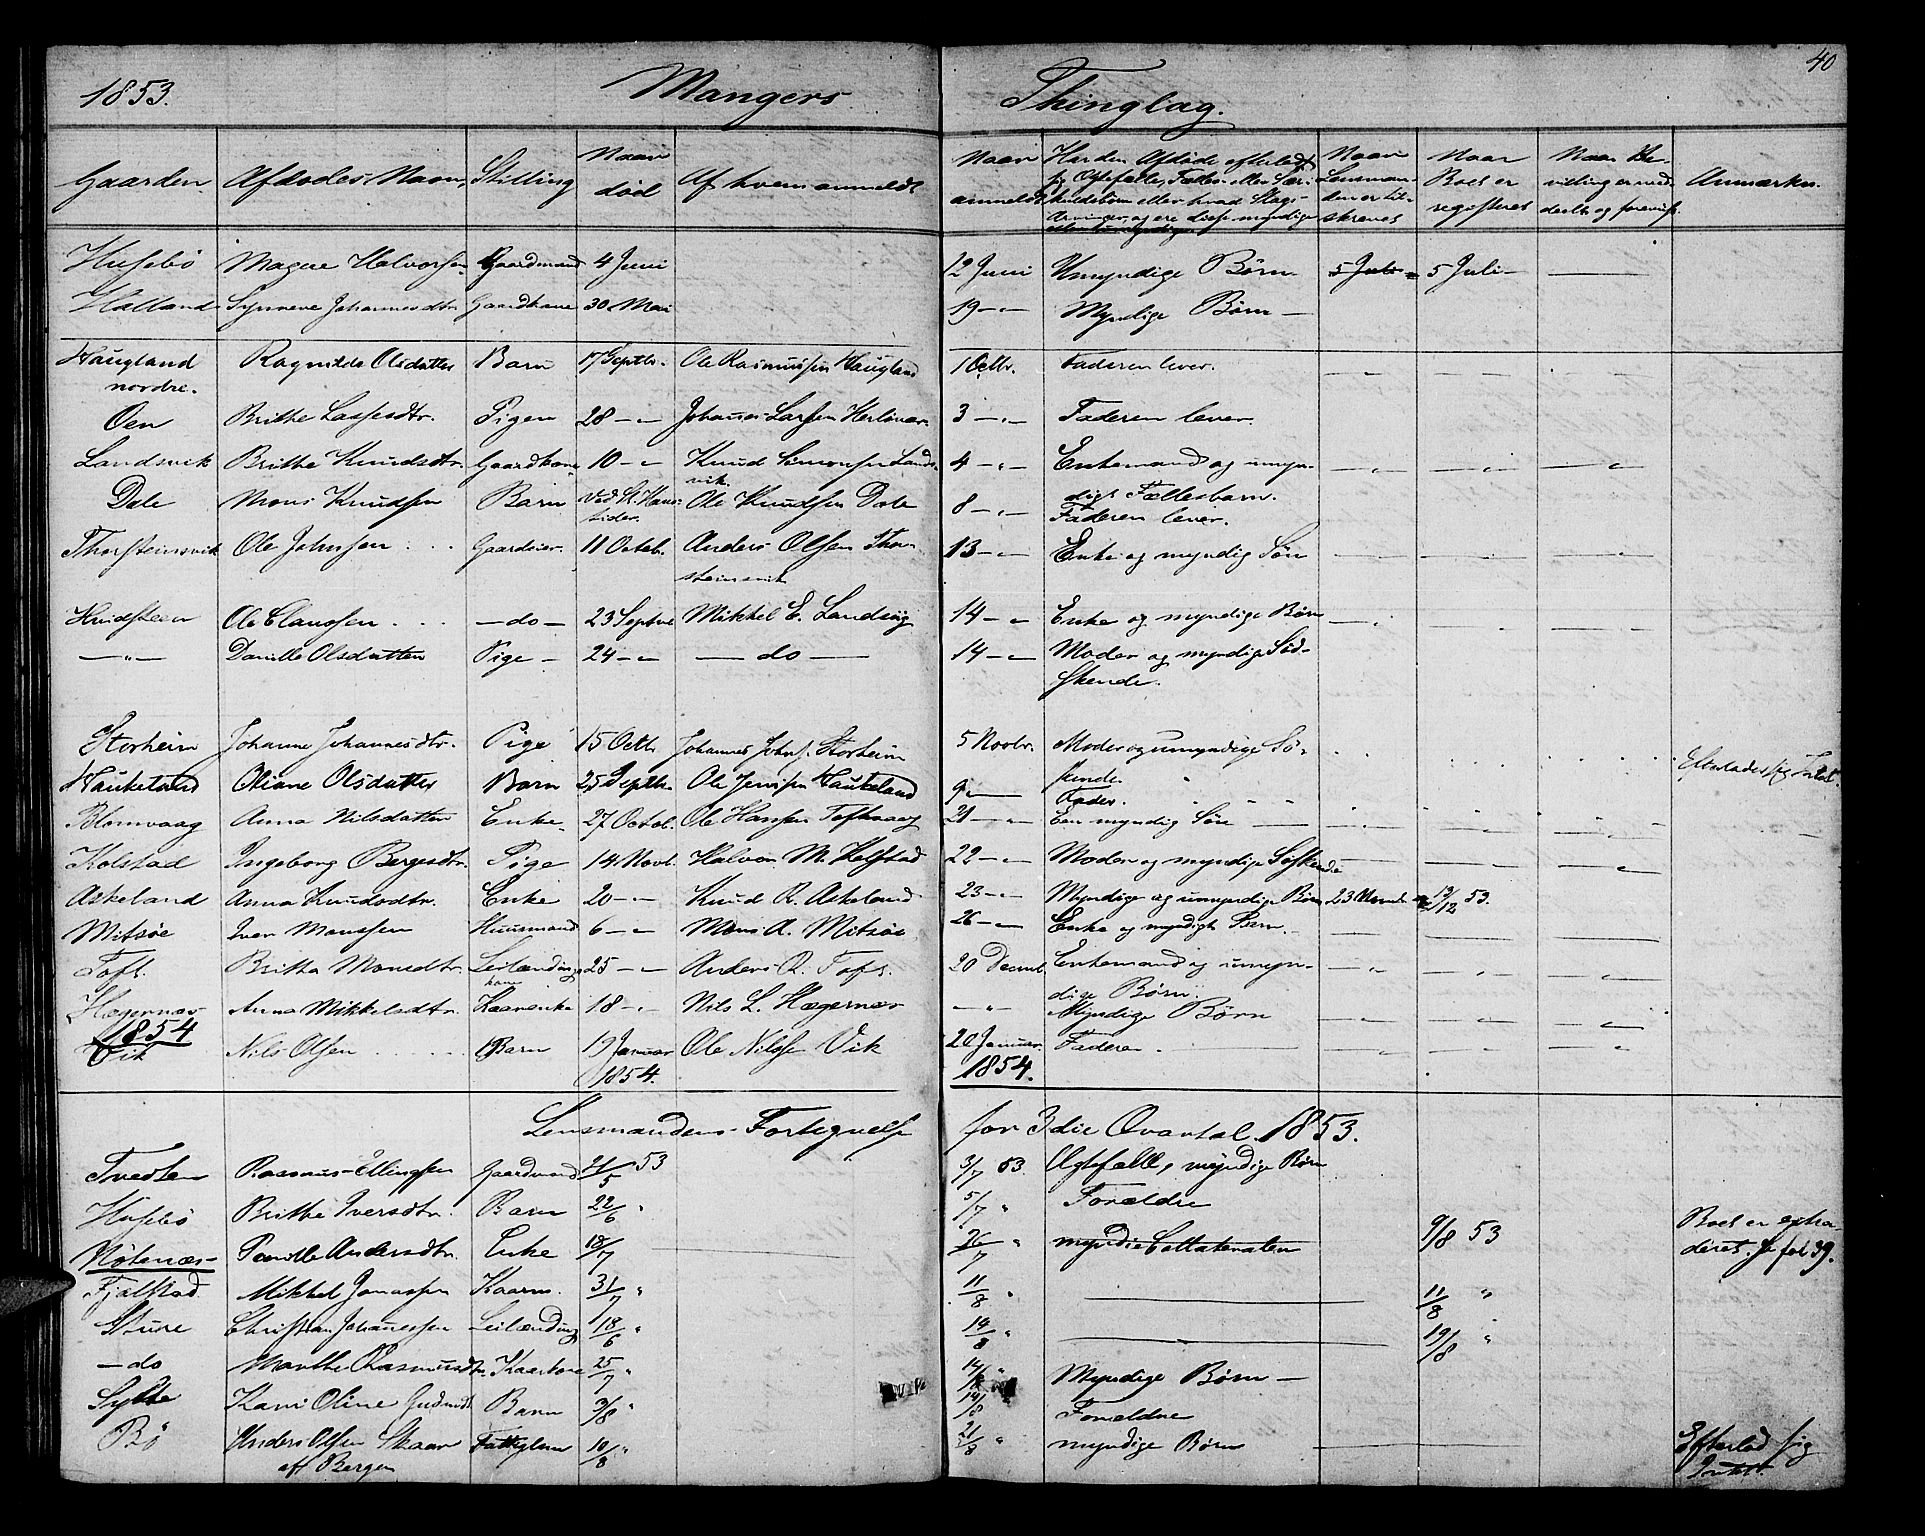 40
1853. Mangers Thinglag.
Gaarden Afdødes Navn, Stilling Naar død Af hvem anmeldt Naar anmeldt Har den Afdøde efterladt sig Ægtefælle, Fælles- eller Sær-kuldebørn eller hvad Slags Arvinger, og ere disse myndige eller umyndige Naar Lensmanden er tilskrevet Naar Boet er registreret Naar Bevilling er meddeelt og forevist Anmærkn.
Husebø Magne Halvorsen Gaardmand 4 Juni 12 Juni Umyndige Børn 5 Juli 5 Juli —
Halland Synneve Johannesdtr. Gaardkone 30 Mai 19 — " — Myndige Børn —
Haugland nordre. Ragnilde Olsdatter Barn 17 Septbr. Ole Rasmussen Haugland 1 Octbr. Faderen lever.
Oen Brithe Lassesdtr. Pigen 28 — " — Johannes Larssen Herløvær 3 — " — Faderen lever.
Landsvik Brithe Knudsdtr. Gaardkone 10 — " — Knud Simonsen Landsvik 4 — " — Enkemand og umyndigt Fællesbarn.
Dale Mons Knudsen Barn ved St. Hans tider. Ole Knudsen Dale 8 — " — Faderen lever.
Thorsteinsvik Ole Johnsen . . . Gaardeier. 11 Octob. Anders Olsen Thorsteinsvik 13 — " — Enke og myndig Søn
Hvidsteen Ole Claussen . . . — do — 23 Septbr Mikkel E. Landsvig 14 — " — Enke og myndige Børn
— " — Dorille Olsdatter Pige — 24 — " — — do — 14 — " — Moder og myndige Sødskende.
Storheim Johanne Johannesdtr. Pige 15 Octb. Johannes Johs. Storheim 5 Novbr. Moder og umyndige Søskende.
Haukeland Oliane Olsdatter Barn 25 Septbr. Ole Jenssen Haukeland 9 — Fader. Efterlader sig Intet.
Blomvaag Anna Nilsdatter Enke. 27 Octob. Ole Hanssen Toftevaag 21 — " — En myndig Søn
Kolstad Ingeborg Bergesdtr. Pige 14 Novb. Halvor M. Kolstad 22 — " — Moder og myndige Søskende
Askeland Anna Knudsdtr. Enke 20 — " — Knud R. Askeland 23 — " — Myndige og umyndige Børn 23 Novemb 19/12 53.
Mitsøe Iver Monssen Huusmand 6 — " — Mons A. Mitsøe 26 — " — Enke og myndigt Barn.
Toft. Britha Monsdtr. Leilændings kone 25 — " — Anders R. Toft. 20 Decmb. Enkemand og umyndige Børn
Hægernær Anna Mikkelsdtr. Kaarenke 18 — " — Nils L. Hægernær — " — Myndige Børn
1854
Vik Nils Olsen . . . . . Barn 19 Januar 1854. Ole Nilssen Vik 20 Januar 1854. Faderen.
Lensmandens Fortegnelse for 3die Qvartal 1853.
Tvedten Rasmus Ellingsen Gaardmand 21/5 53 3/7 53. Ægtefælle, myndige Børn
Husebø Brithe Iversdtr. Barn 22/6 " 5/7 " Forældre
Nøtenæs — Pernille Andersdtr. Enke 18/7 26/7 " myndie Collateraler 9/8 53 Boet er extraderet. Se fol 39.
Fjælstad Mikkel Jonassen Kaarm. 31/7 " 11/8 " — 11/8 "
Sture Christian Johannessen Leilænding 18/6 " 14/8 " — 19/8 "
— do Marthe Rasmusdtr. Kaarkone 25/7 " 14/8 " Myndige Børn —
Sylte Kari Oline Gudmdtr Barn 9/8 " 14/8 Forældre
Bø Anders Olsen Skaar aff Bergen Fattiglem 10/8 " 21/8 " myndige Børn Efterlod sig Intet.